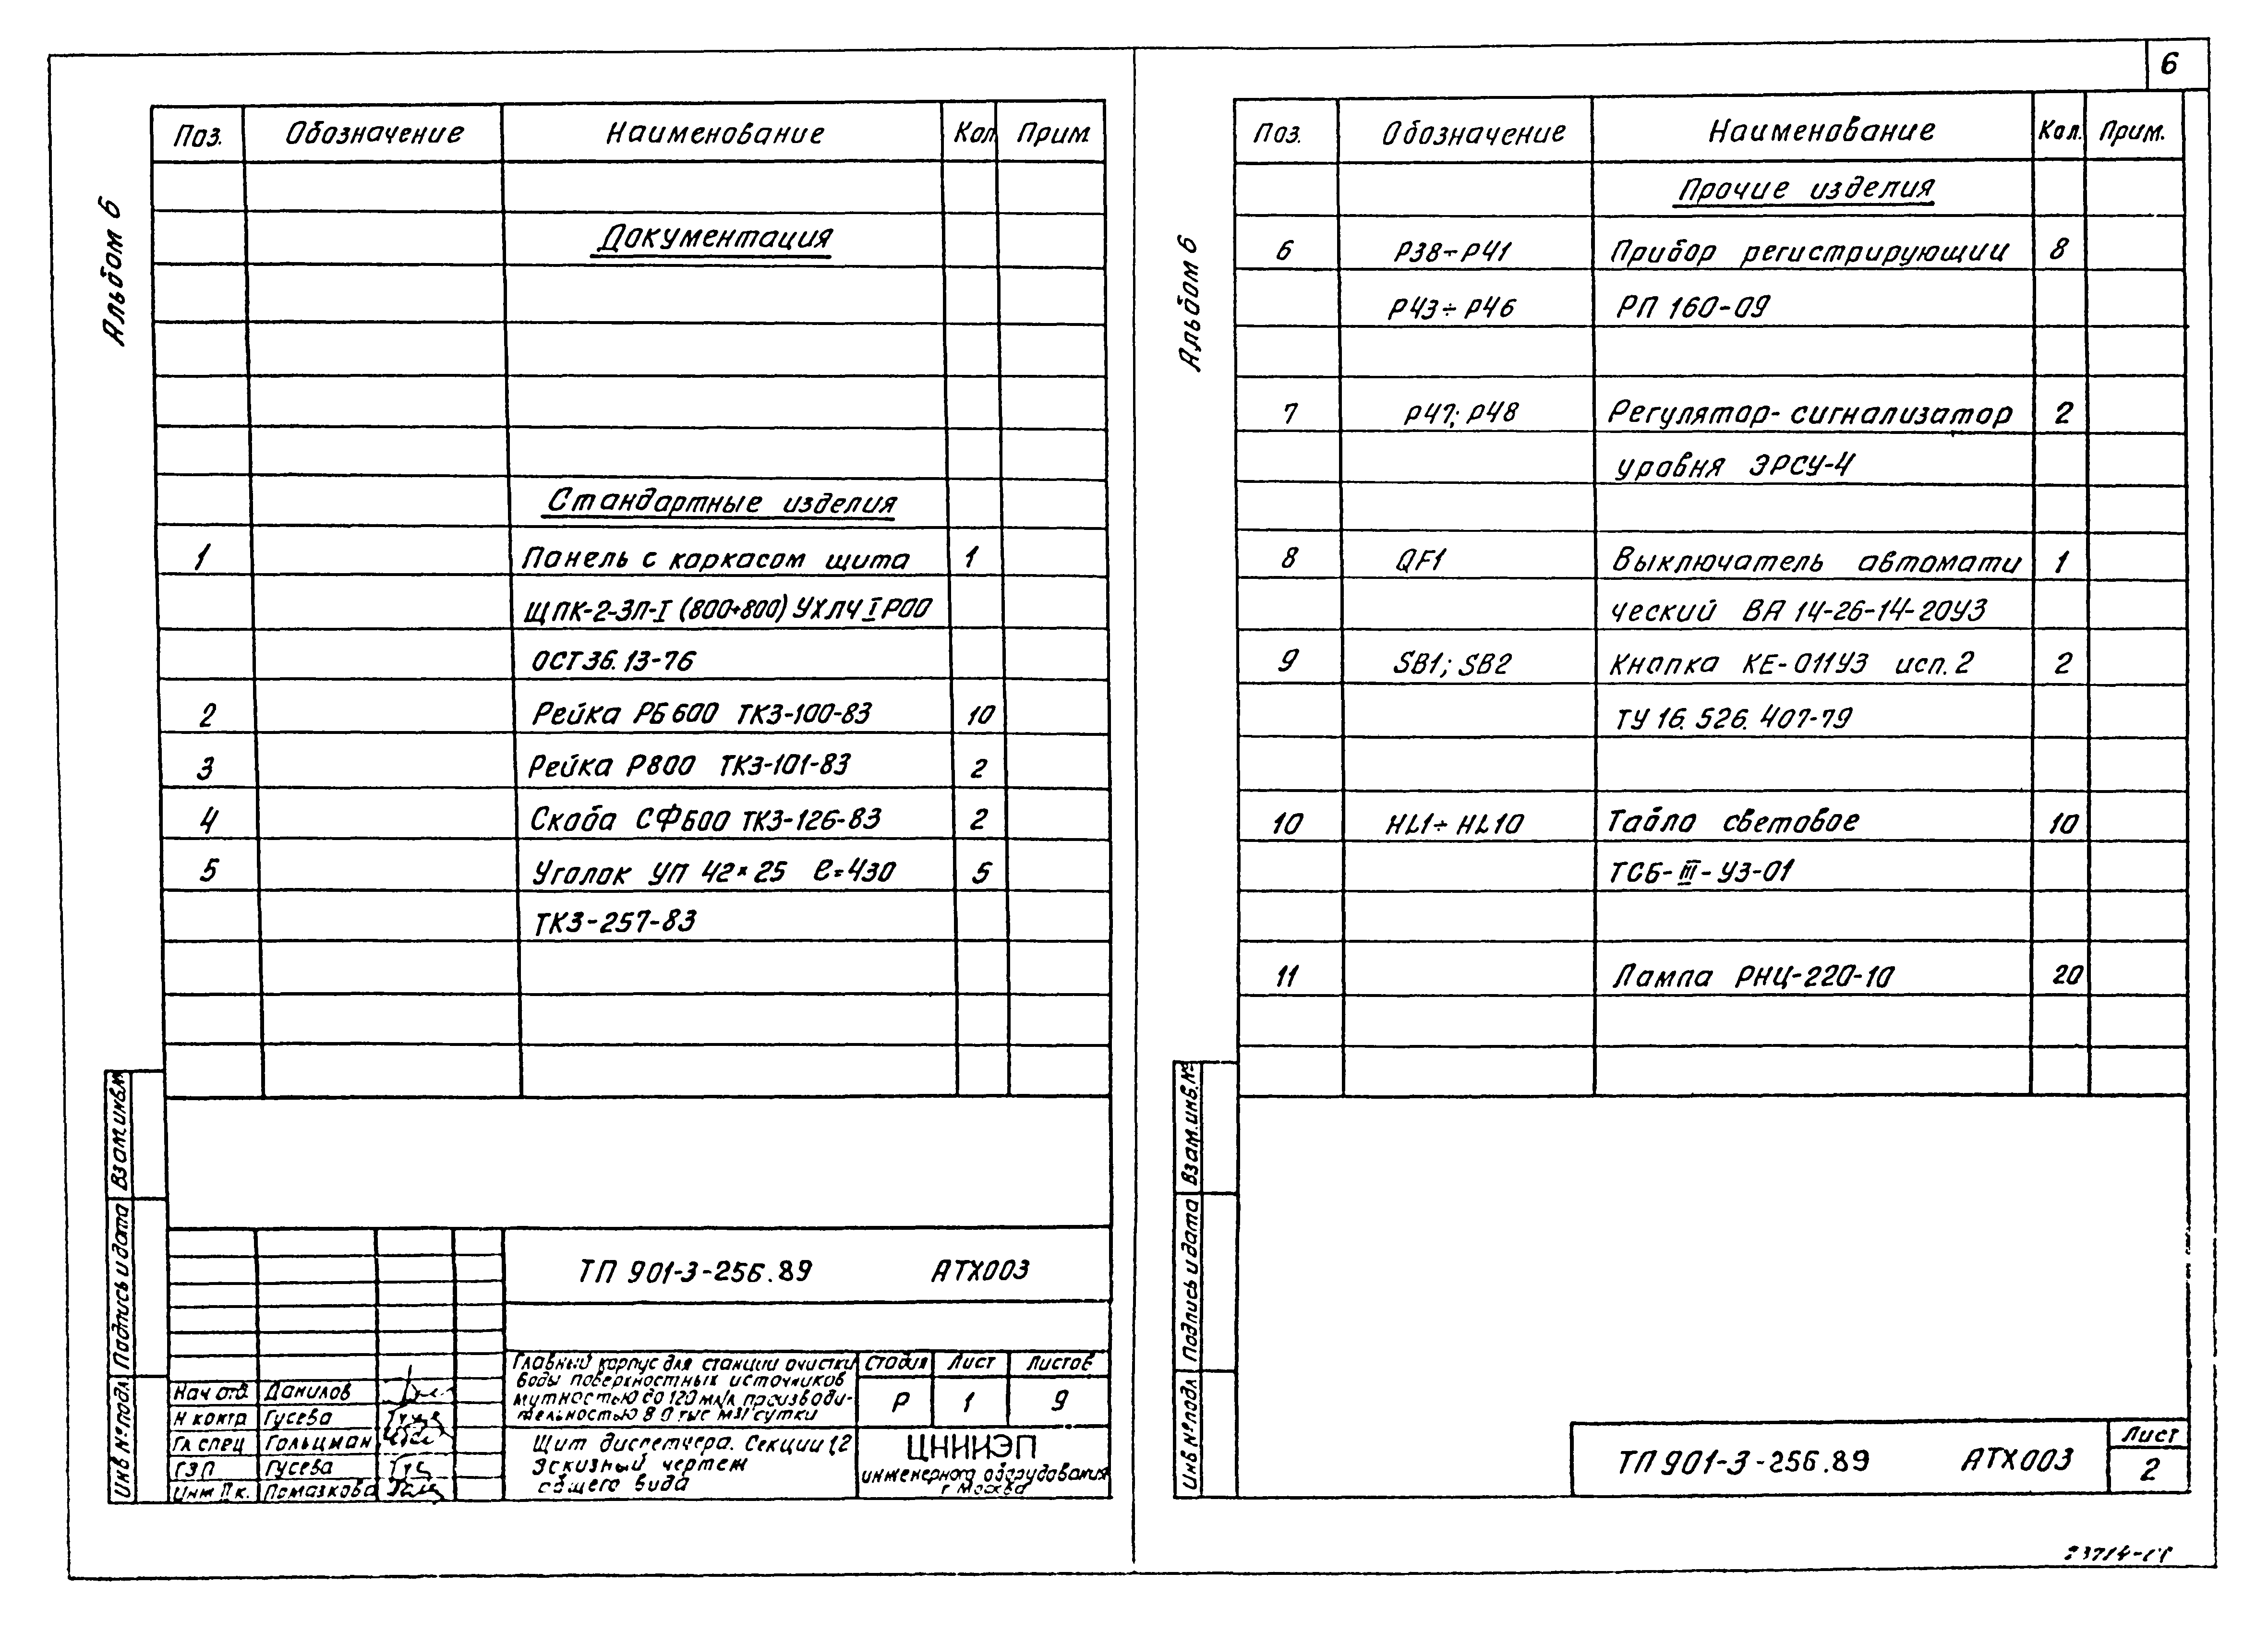 6
Альбом 6
Поз. Обозначение Наименование Кол Прим
Документация
Стандартные изделия
1 Панель с каркасом щита 1
ЩПК-2-ЗП-I (800+800) УХЛЧ IP00
ОСТ 36.13-76
2 Рейка РБ600 ТК3-100-83 10
3 Рейка Р800 ТК3-101-83 2
4 Скоба СФ600 ТК3-126-83 2
5 Уголок УП 42×25 ℓ=430 5
ТК3-257-83
Взам.инв.№
Подпись и дата
Инв № подл
ТП 901-3-256.89 АТХ003
Главный корпус для станции очистки
воды поверхностных источников
мутностью до 120 мг/л производи-
тельностью 8 0 тыс м3/сутки
Стадия Лист Листов
Р 1 9
Нач отд. Данилов
Н контр Гусева
Гл спец Гольцман
ГЭП Гусева
Инж II к. Помазкова
Щит диспетчера. Секции 1,2
Эскизный чертеж
общего вида
ЦНИИЭП
инженерного оборудования
г Москва
Альбом 6
Поз. Обозначение Наименование Кол. Прим.
Прочие изделия
6 Р38÷Р41 Прибор регистрирующии 8
Р43÷Р46 РП 160-09
7 Р47; Р48 Регулятор-сигнализатор 2
уровня ЭРСУ-4
8 QF1 Выключатель автомати 1
ческий ВА 14-26-14-20У3
9 SB1; SB2 Кнопка КЕ-011У3 исп.2 2
ТУ 16.526.407-79
10 HL1÷HL10 Табло световое 10
ТСБ-III-У3-01
11 Лампа РНЦ-220-10 20
Взам.инв.№
Подпись и дата
Инв № подл
ТП 901-3-256.89 АТХ003
Лист
2